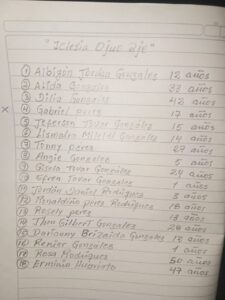 "Iglesia Ojue dje"
① Albizon Jordan Gonzales 12 años
② Alida Gonzales 33 años
③ Dilia Gonzales 42 años
④ Gabriel peres 17 años
⑤ Jeferson Tovar Gonzales 15 años
⑥ Lisandro Gonzales 14 años
⑦ Tonny peres 27 años
⑧ Angie Gonzales 5 años
⑨ Gisela Tovar Gonzales 24 años
⑩ Efren Tovar Gonzales 1 años
⑪ Jordan Daniel Rodriguez 8 años
⑫ Ronaldiño peres Rodriguez 18 años
⑬ Rosely peres 13 años
⑭ Jhon Gilbert Gonzales 20 años
⑮ Darianny Brizaida Gonzales 12 años
⑯ Renier Gonzales 1 años
⑰ Rosa Rodriguez 60 años
⑱ Erminia 47 años